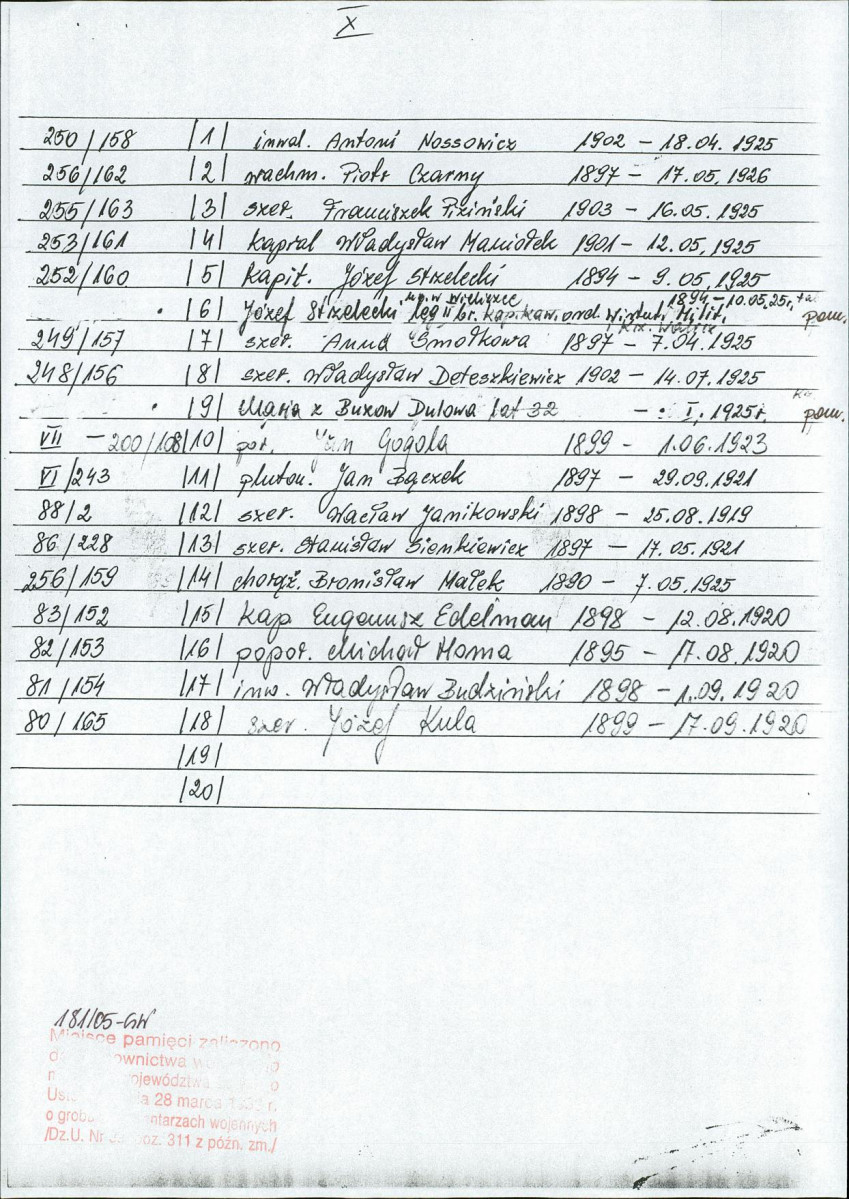 X
250/158 |1| inwal. Antoni Nossowicz 1902 – 18.04.1925
256/162 |2| wachm. Piotr Czarny 1897 – 17.05.1926
255/163 |3| szer. Franciszek Piziński 1903 – 16.05.1925
253/161 |4| kapral Władysław Maniołek 1901 – 12.05.1925
252/160 |5| kapit. Józef Strzelecki 1894 – 9.05.1925
ug. w Wieliczce 1894 – 10.05.25r.
|6| Józef Strzelecki leg II br. kap. kaw. ord. Wirtuti Milit. pom.
Krz. Walecz
249/157 |7| szer. Anna Smołkowa 1897 – 7.04.1925
248/156 |8| szer. Władysław Deteszkiewicz 1902 – 14.07.1925
|9| Maria z Buxow Dulowa lat 32 – . I. 1925r. pom.
VII – 200/108 |10| por. Jan Gogola 1899 – 1.06.1923
VI/243 |11| pluton. Jan Bączek 1897 – 29.09.1921
88/2 |12| szer. Wacław Janikowski 1898 – 25.08.1919
86/228 |13| szer. Stanisław Sienkiewicz 1897 – 17.05.1921
256/159 |14| chorąż. Bronisław Małek 1890 – 7.05.1925
83/152 |15| Kap Eugeniusz Edelman 1898 – 12.08.1920
82/153 |16| popor. Michał Homa 1895 – 17.08.1920
81/154 |17| inw. Władysław Budziński 1898 – 1.09.1920
80/165 |18| szer. Józef Kula 1899 – 17.09.1920
|19|
|20|
181/05-GW
Miejsce pamięci zaliczono
ownictwa
ojewództwa
28 marca
o grob ntarzach wojennych
/Dz.U. Nr poz. 311 z późn. zm./